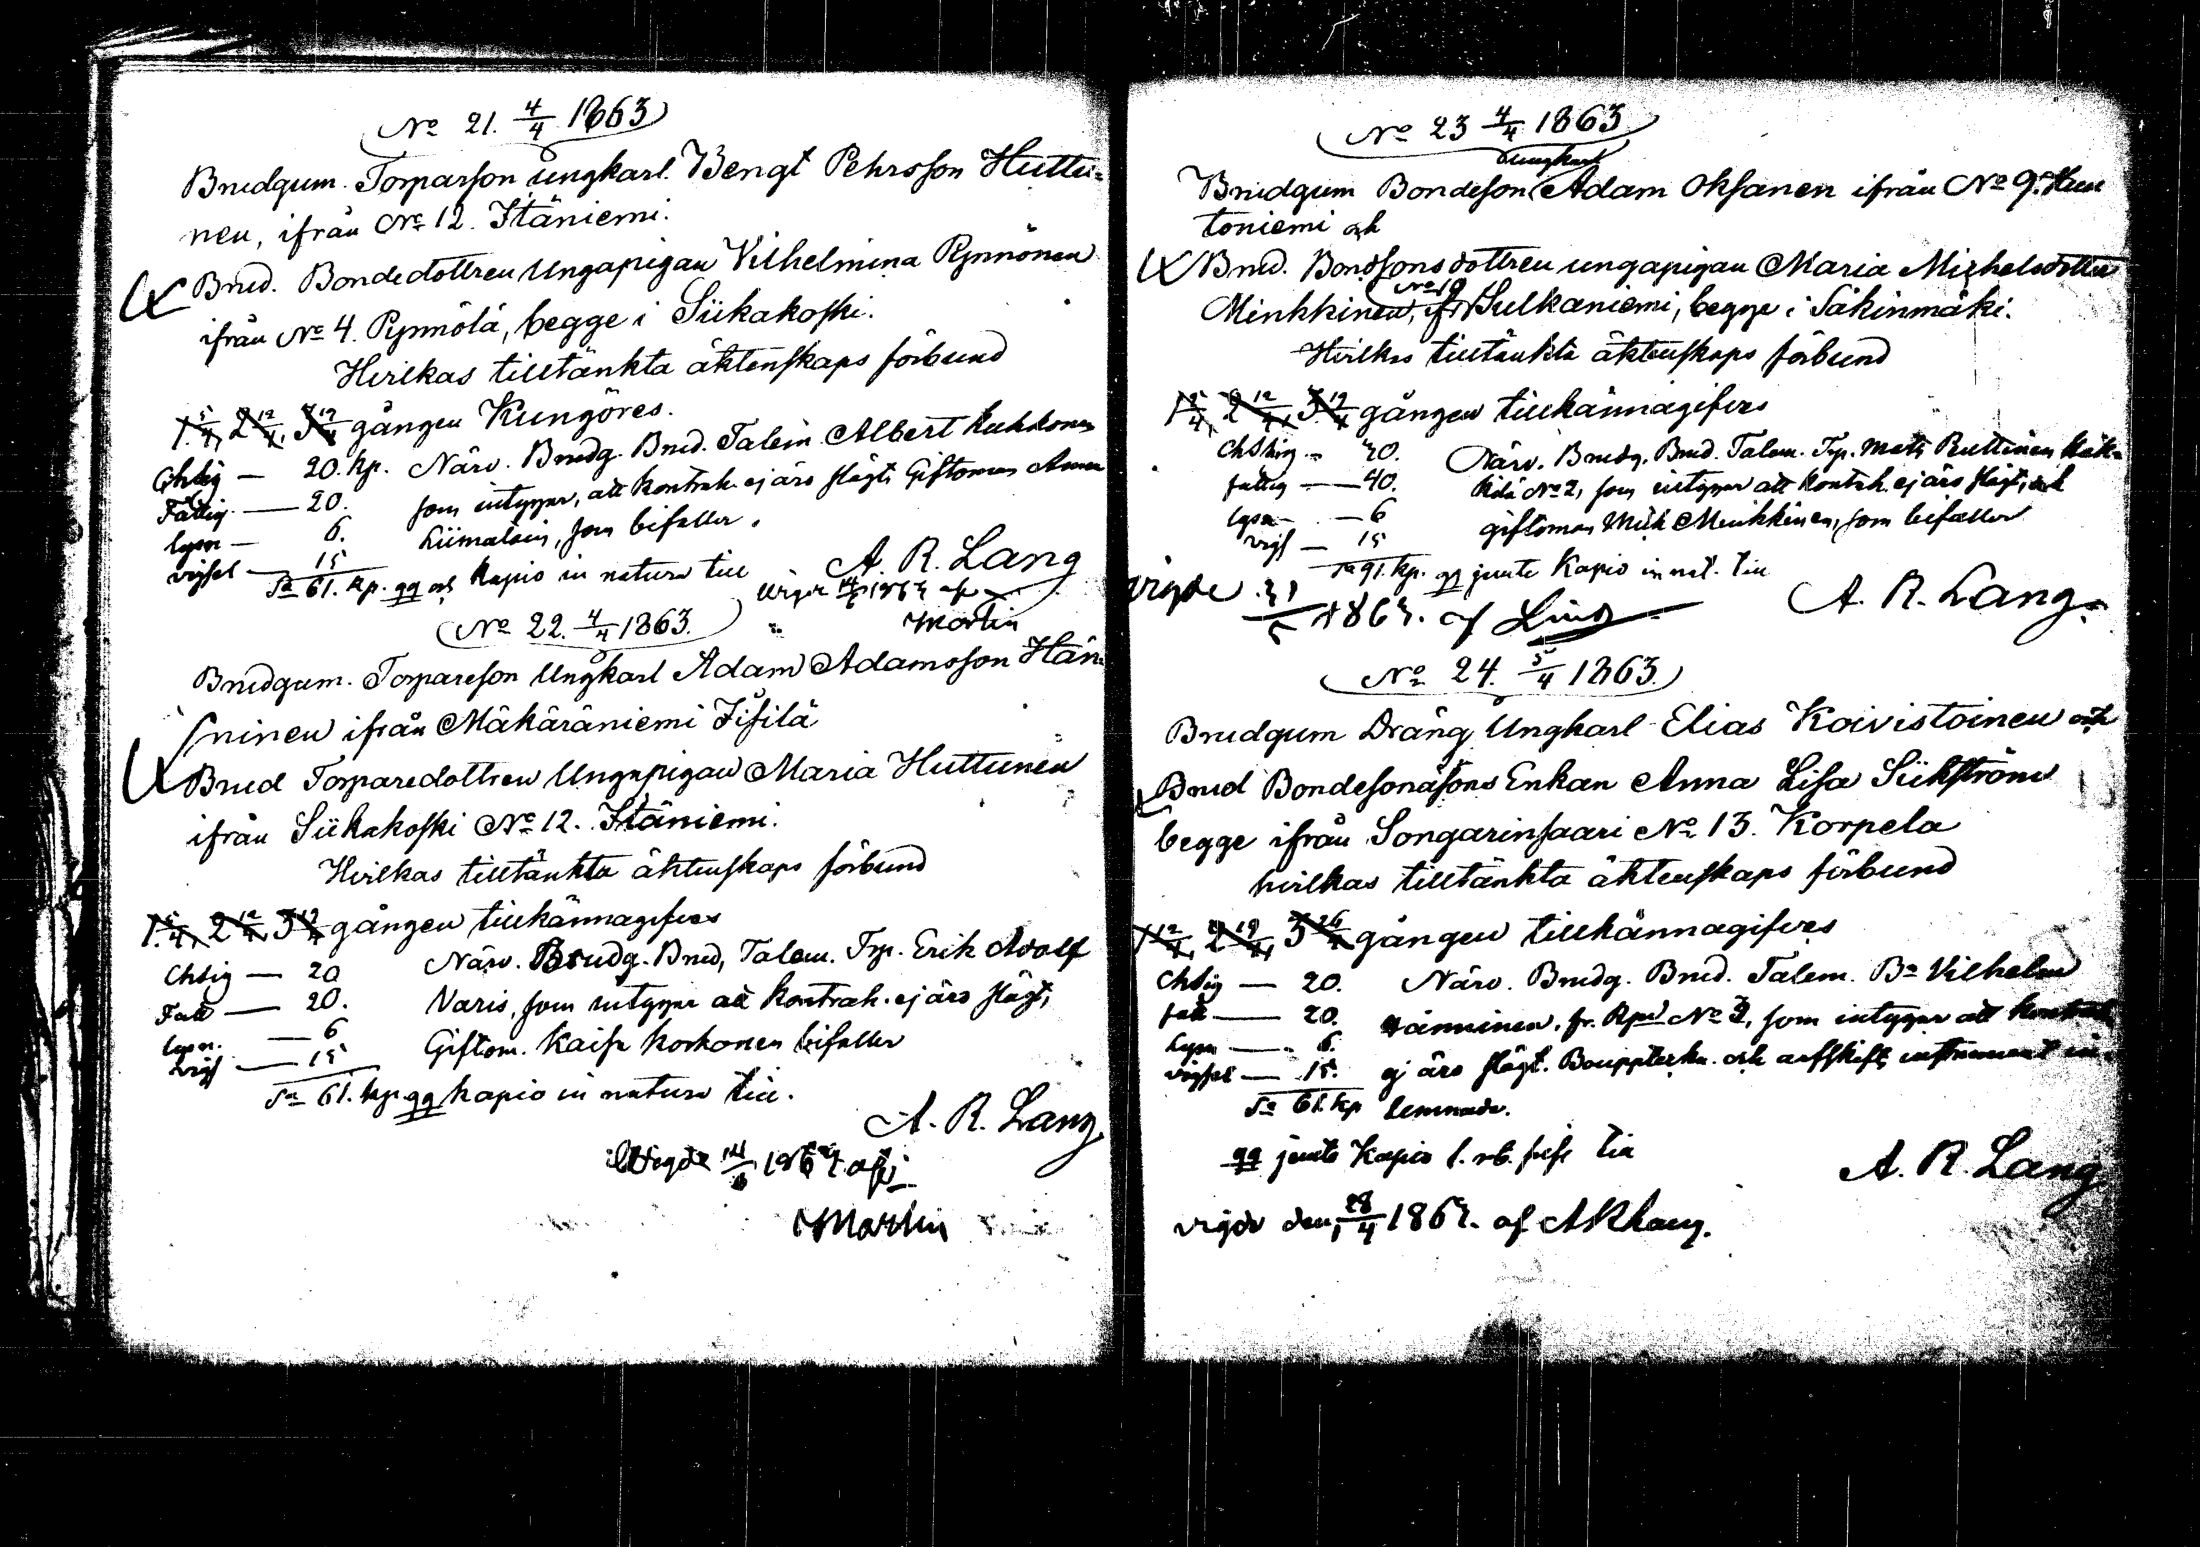 No 21. 4/4 1863
Brudgum. Torparson ungkarl. Bengt Pehrsson Huttu=
nen, ifrån No 12. Itäniemi.
Brud. Bondedottren Ungapigan Vilhelmina Pynnönen
ifrån No 4. Pynnölä, begge i Siikakoski.
Hvilkas tilltänkta äktenskaps förbund
1. 5/4, 2 12/4, 3 19/4 gången Kungöres.
Chtlig — 20. kp. Närv. Brudg. Brud. Talem. Albert
Fattig. — 20. som intygar, att kontrah. ej äro slägt, Giftoman Anna
lysn — 6. Liimatain, som bifaller.
vigsel — 15
Sa 61. kp. gg och kapio in natura till A. R. Lang
1863 af
Martin
No 22. 4/4 1863.
Brudgum. Torpareson Ungkarl Adam Adamsson Hän
ninen ifrån Mäkäräniemi Jisilä
Brud Torparedottren Ungapigan Maria Huttunen
ifrån Siikakoski No 12. Itäniemi.
Hvilkas tilltänkta äktenskaps förbund
1. 5/4, 2 12/4, 3 19/4 gången tillkännagifves
Chtlig — 20 Närv. Brudg. Brud, Talem. Trp. Erik Adolf
Fatt — 20. Varis, som intygar att kontrah. ej äro slägt,
lysn. — 6 Giftom. Kaisa Korhonen bifaller
vigs — 15
Sa 61. kp. gg kapio in natura till.
A. R. Lang
Vigde
Martin
No 23 4/4 1863
ungkarl
Brudgum Bondeson Adam Oksanen ifrån No 9. Kun
toniemi och
Brud. Bondsonsdottren ungapigan Maria Michelsdotter
No 10
Minkkinen, ifr. Sulkaniemi, begge i Säkinmäki.
Hvilkas tilltänkta äktenskaps förbund
1 5/4, 2 12/4, 3 19/4 gången tillkännagifves
Chtlig — 20. Närv. Brudg. Brud. Talem. Trp. Mats Ruttinen
fattig — 40. No 2, som intygar att kontrah. ej äro slägt, och
lysn — 6 giftoman Mich Minkkinen, som bifaller
vigs — 15
Sa 91. kp. gg jemte Kapio in nat. till
A. R. Lang.
vigde 31/5 1863. af Lind
No 24. 5/4 1863.
Brudgum Dräng Ungkarl Elias Koivistoinen och
Brud Bondesonasons Enkan Anna Lisa Siikström
begge ifrån Songarinsaari No 13. Korpela
hvilkas tilltänkta äktenskaps förbund
1 12/4, 2 19/4, 3 26/4 gången tillkännagifves
Chtlig — 20. Närv. Brudg. Brud. Talem. Bn Vilhelm
fatt — 20. Hänninen, fr. No 3, som intygar att kontrah
Lysn — 6. ej äro slägt. Boupptekn. och arfskifts instrument in=
vigsel — 15. lemnade.
Sa 61. kp
gg jemte Kapio till
A. R. Lang
vigde den 28/4 1863. af ARLang.